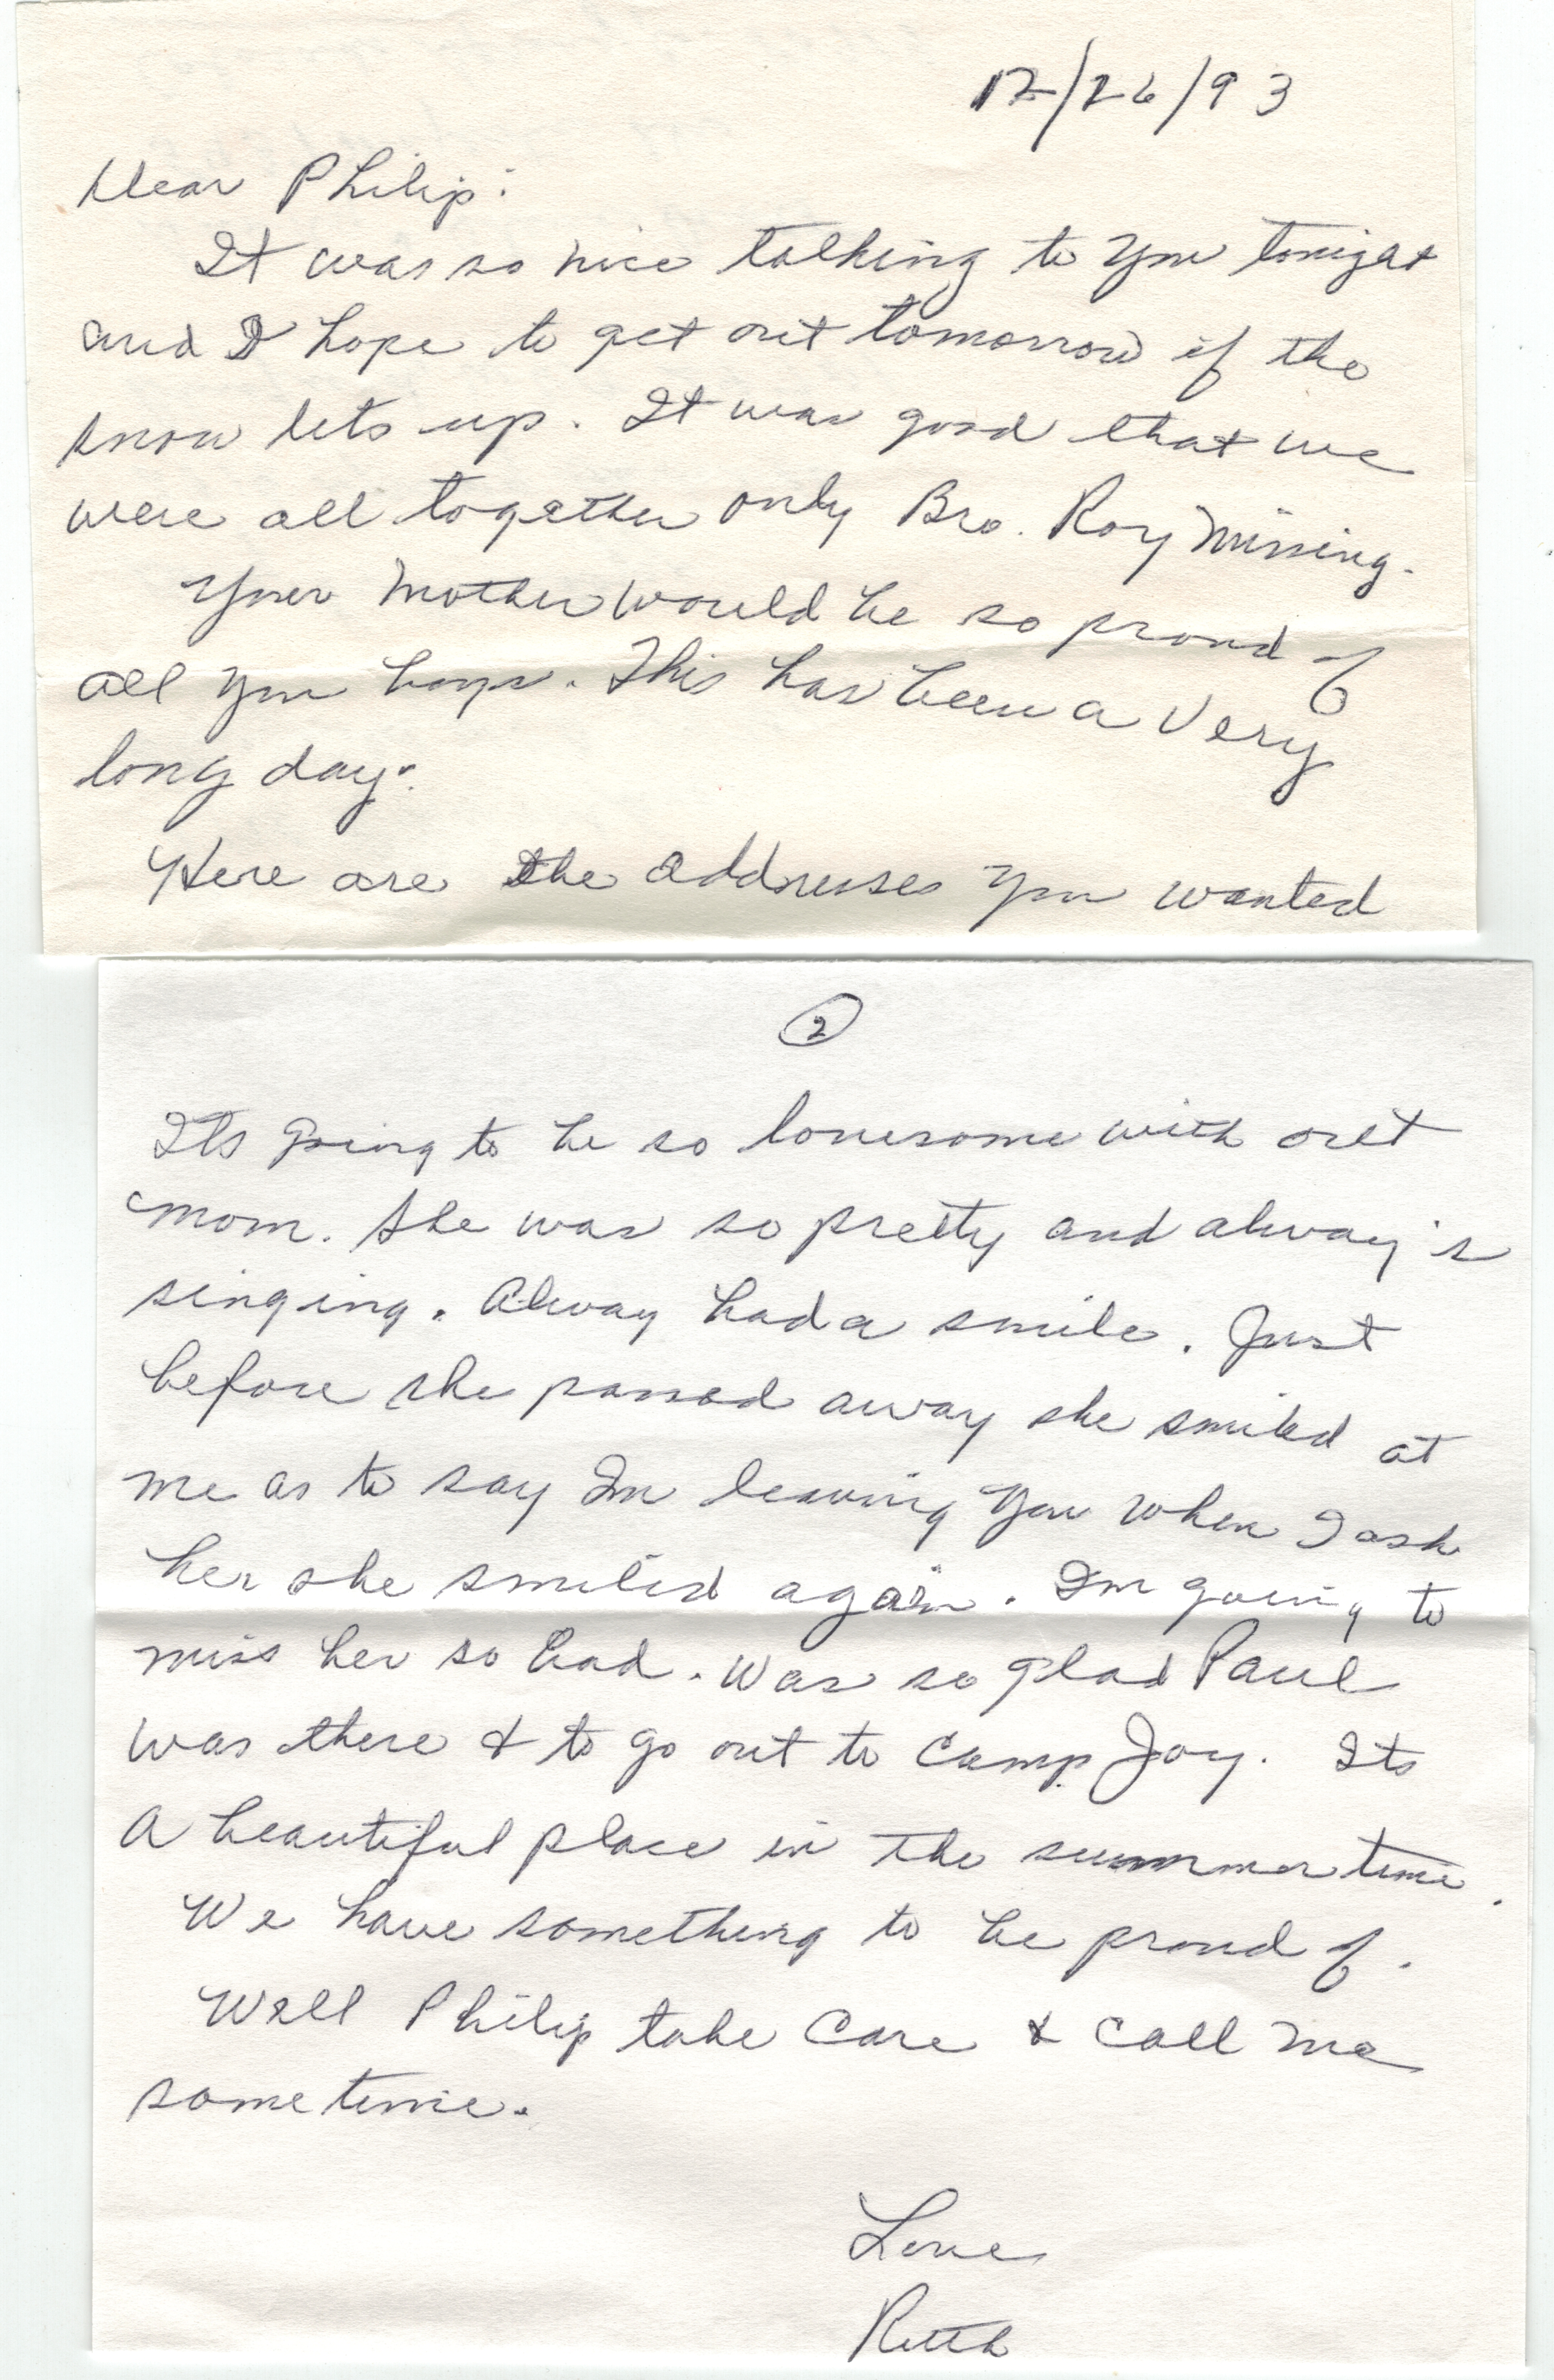 12/26/93
Dear Philip:
It was so nice talking to you tonight
and I hope to get out tomorrow if the
snow lets up. It was good that we
were all together only Bro. Roy missing.
Your mother would be so proud of
all you boys. This has been a very
long day.
Here are the addresses you wanted
2
Its going to be so lonesome with out
mom. She was so pretty and alway's
singing. Alway had a smile. Just
before she passed away she smiled at
me as to say Im leaving you when I ask
her she smiled again. Im going to
miss her so bad. Was so glad Paul
was there & to go out to Camp Joy. Its
a beautiful place in the summer time.
We have something to be proud of.
Well Philip take care & call me
sometime.
Love
Ruth